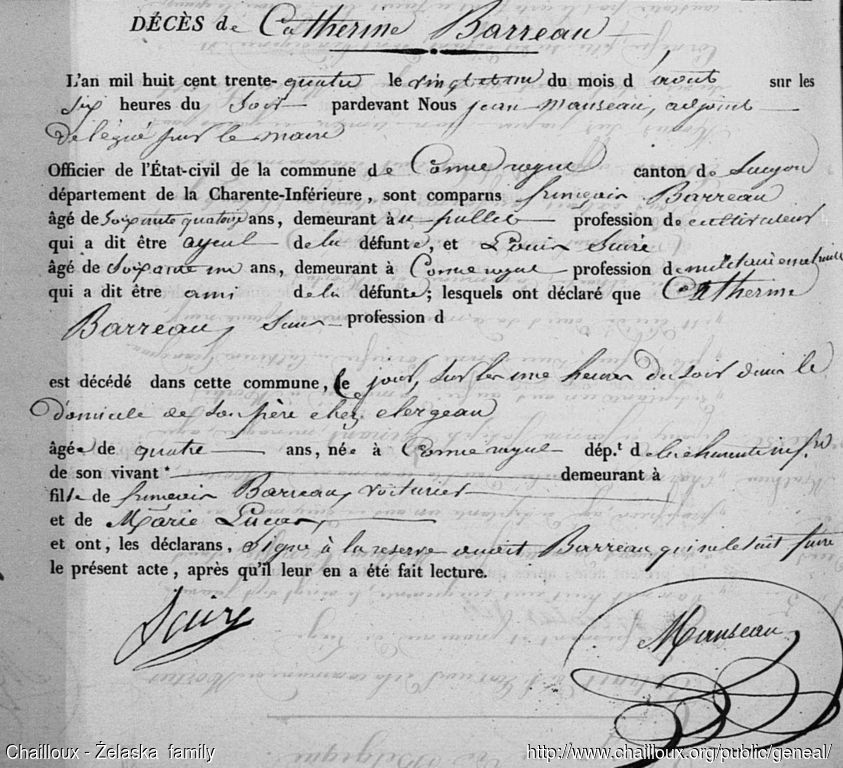 DÉCÈS de Catherine Barreau
L'an mil huit cent trente-quatre le vingt et un du mois d'août sur les
six heures du soir pardevant Nous jean Manseau, adjoint
délégué par le maire
Officier de l'État-civil de la commune de canton de
département de la Charente-Inférieure, sont comparus françois Barreau
âgé de soixante quatorze ans, demeurant à profession de cultivateur
qui a dit être ayeul de la défunte, et Louis Suire
âgé de soixante un ans, demeurant à profession de militaire en retraite
qui a dit être ami de la défunte; lesquels ont déclaré que Catherine
Barreau, sans profession d
est décédé dans cette commune, ce jour, sur les une heures du soir dans le
domicile de son père chez clergeau
âgée de quatre ans, née à dép.t de la charente inf.re
de son vivant demeurant à
fille de francois Barreau, voiturier
et de Marie Lucas,
et ont, les déclarans, signé à la reserve Barreau qui ne le sait faire
le présent acte, après qu'il leur en a été fait lecture.
Suire
Manseau
Chailloux - Želaska family
http://www.chailloux.org/public/geneal/